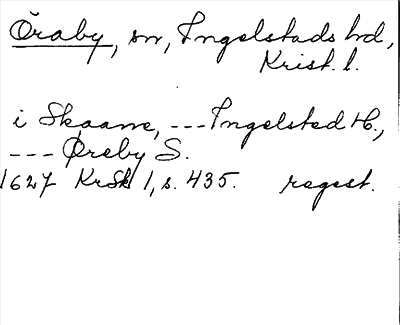 Öraby, sn, Ingelstads hd,
Krist. l.
i Skaane, --- Ingelsted H.,
--- Øreby S.
1627 KrSk 1, s. 435. regest.